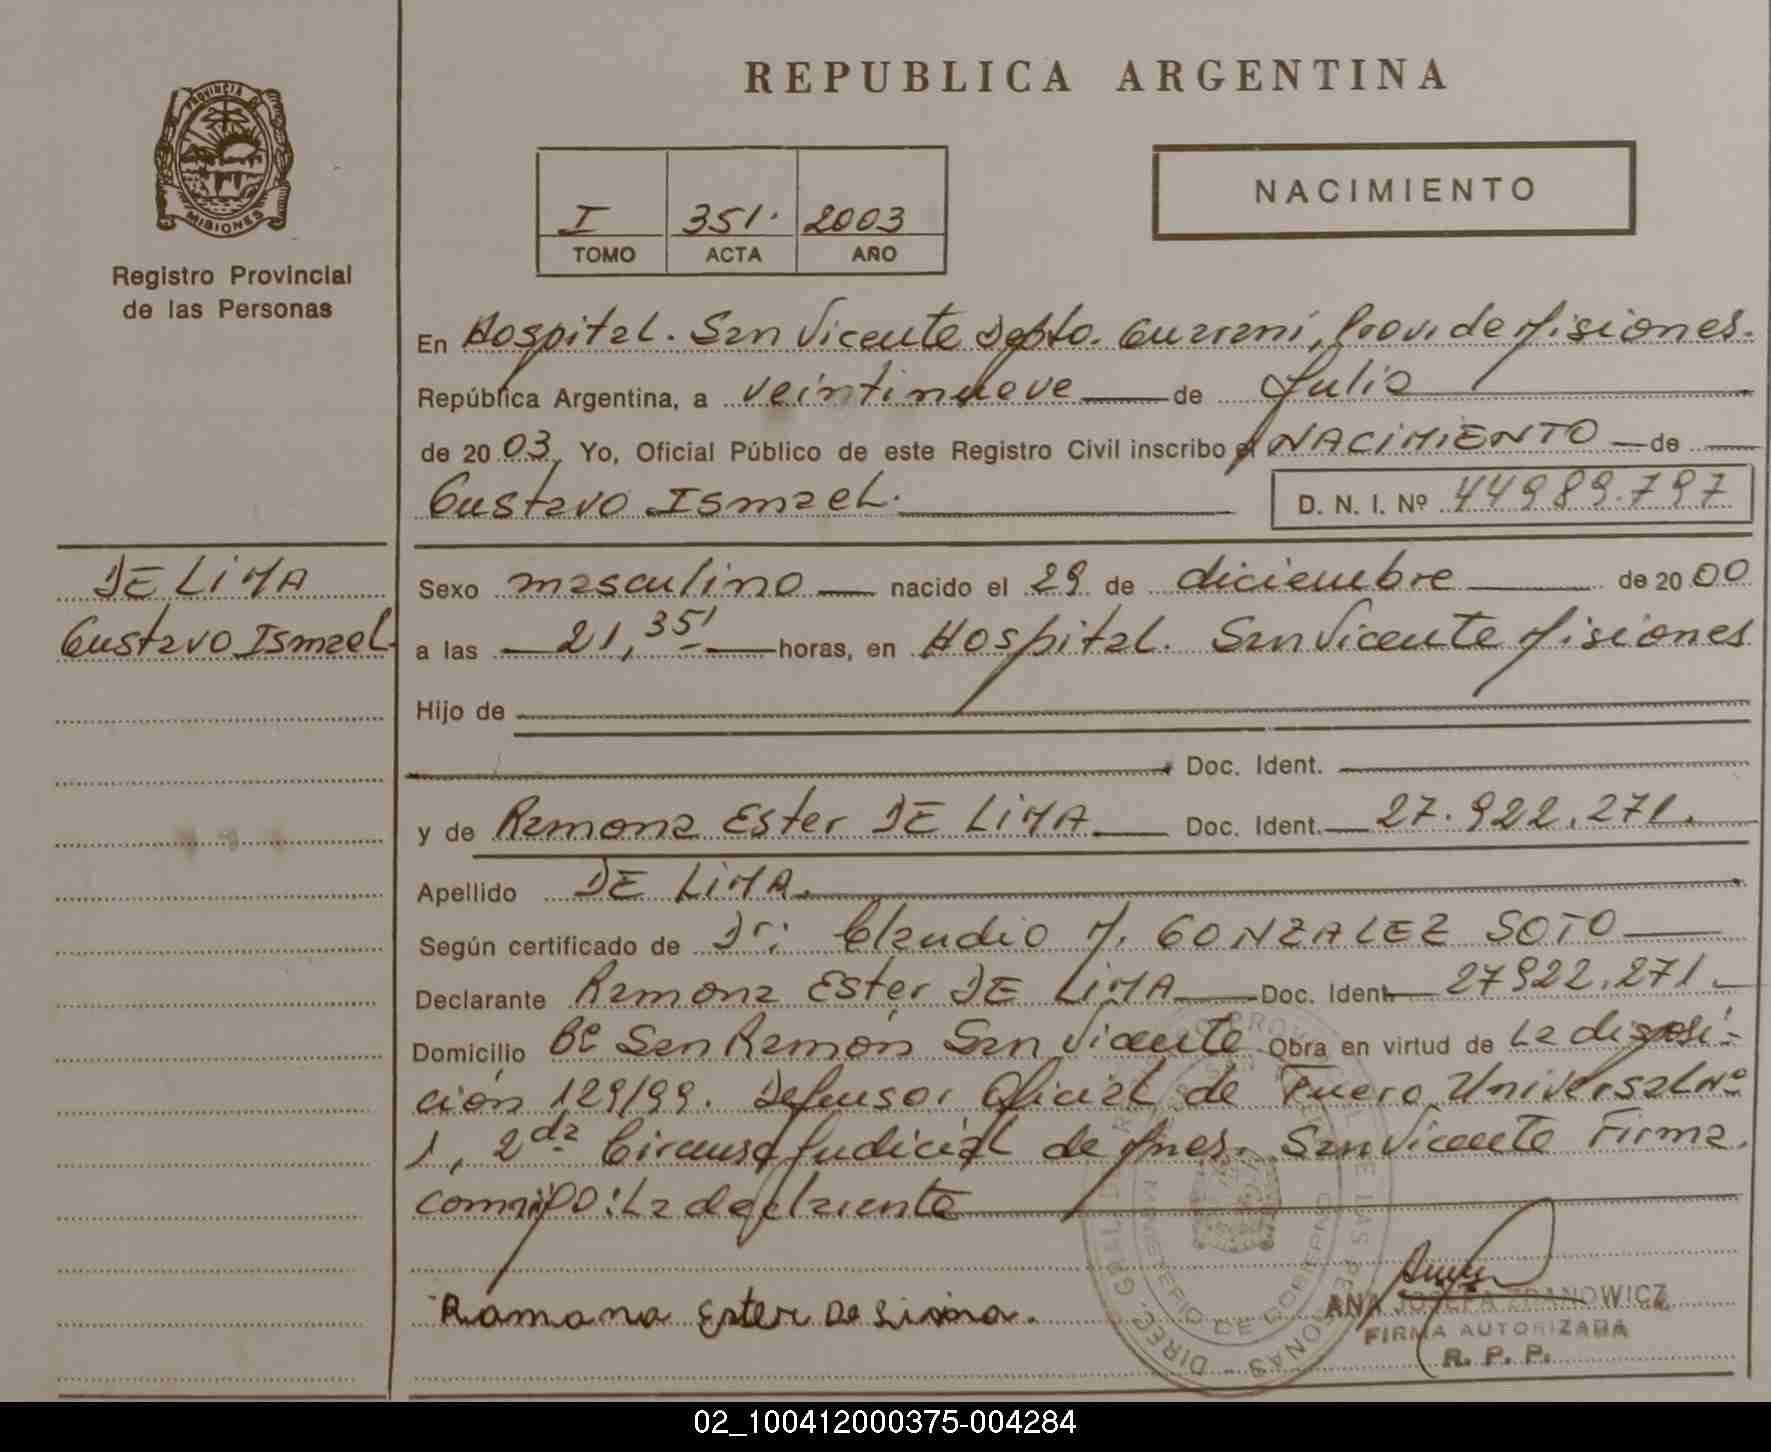 REPUBLICA ARGENTINA
PROVINCIA DE
MISIONES
Registro Provincial
de las Personas
I 351. 2003
TOMO ACTA AÑO
NACIMIENTO
En Hospital. San Vicente Depto. Guaraní, Prov. de Misiones.
República Argentina, a veintinueve de Julio
de 2003. Yo, Oficial Público de este Registro Civil inscribo el NACIMIENTO de
Gustavo Ismael.
D. N. I. Nº 44989.797
DE LIMA
Gustavo Ismael
Sexo masculino nacido el 29 de diciembre de 2000
a las 21,35' horas, en Hospital. San Vicente Misiones
Hijo de
Doc. Ident.
y de Ramona Ester DE LIMA Doc. Ident. 27.922.271.
Apellido DE LIMA.
Según certificado de Dr: Claudio M. GONZALEZ SOTO
Declarante Ramona Ester DE LIMA Doc. Ident. 27922.271.
Domicilio Bº San Ramón San Vicente Obra en virtud de La disposi-
ción 129/99. Defensor Oficial de Fuero Universal Nº
1, 2da Circunsc Judicial de Mnes. San Vicente Firma
conmigo: La declarante
Ramona Ester De Lima.
ANA JOSEFA ZDANOWICZ
FIRMA AUTORIZADA
R. P. P.
02_100412000375-004284